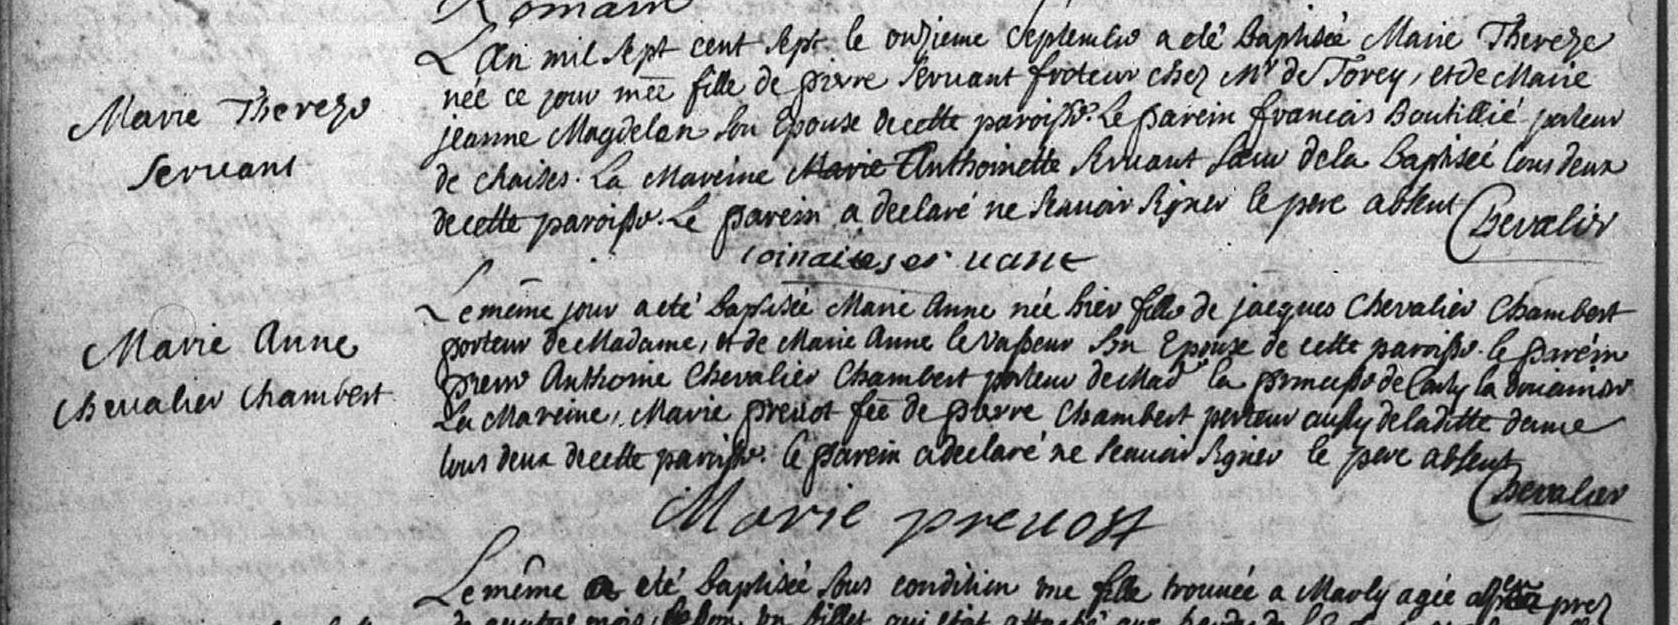 Romain
L'An mil sept cent sept le onzieme septembre a eté baptisée Marie Thereze
née ce jour mee fille de pierre Servant froteur chez Mr de Torcy, et de Marie
jeanne Magdelan son Epouse de cette paroisse. Le parein francois Boutillié porteur
de chaises. La Mareine Marie Anthoinette Servant soeur de la baptisée tous deux
de cette paroisse. Le parein a declaré ne scauoir signer le pere absent
Chevalier
Marie Thereze
Seruant
Le même jour a eté baptisée Marie Anne née hier fille de jacques Chevalier Chambert
porteur de Madame, et de Marie Anne le Vasseur son Epouse de cette paroisse. le parein
pierre Anthoine Chevalier Chambert porteur de Made la princesse de la douairier
La Mareine, Marie preuot fee de pierre Chambert porteur aussy de laditte dame
tous deux de cette paroisse. le parein a declaré ne scauoir signer le pere absent
Chevalier
Marie Anne
Cheualier Chambert
Marie preuost
Le même a eté baptisée sous condition une fille trouuée a Marly agée prez
de quatre mois, selon un billet qui etoit attaché aux